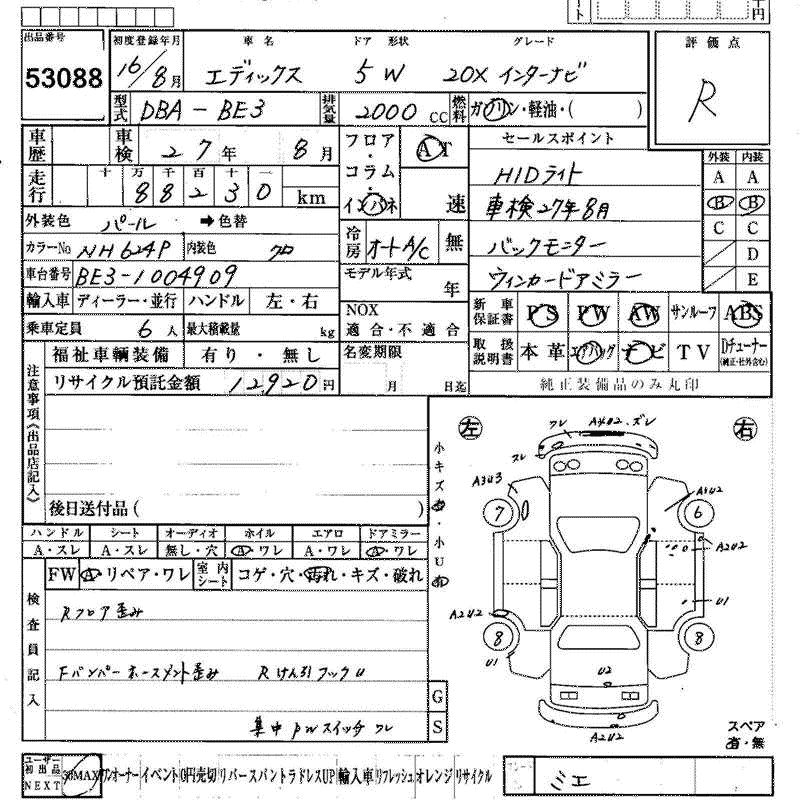 ト
千
円
出品番号 初度登録年月 車名 ドア 形状 グレード 評価点
53088 16/8月 エディックス 5W 20Xインターナビ R
型式 DBA-BE3 排気量 2000 CC 燃料 ガソリン・軽油・( )
車歴 車検 27年 8月 フロア・コラム・インパネ AT 速 セールスポイント 外装 内装
走行 十 万 千 百 十 一
88230 km
HIDライト
車検27年8月
バックモニター
ウィンカードアミラー
A A
B B
C C
D
E
外装色 パール ➡色替
カラーNo NH624P 内装色 クロ 冷房 オートA/C 無
車台番号 BE3-1004909 モデル年式 年
輸入車 ディーラー・並行 ハンドル 左・右 NOX 適合・不適合
乗車定員 6人 最大積載量 kg
新車保証書 PS PW AW サンルーフ ABS
取扱説明書 本革 エアバッグ ナビ TV Dチューナー(純正・社外含む)
純正装備品のみ丸印
注意事項《出品店記入》
福祉車輌装備 有り・無し 名変期限
リサイクル預託金額 12920円 月 日迄
後日送付品( )
ハンドル シート オーディオ ホイル エアロ ドアミラー
A・スレ A・スレ 無し・穴 A・ワレ A・ワレ A・ワレ
FW A・リペア・ワレ 室内シート コゲ・穴・汚れ・キズ・破れ
検査員記入
Rフロア歪み
Fバンパーホースメント歪み Rけん引フックU
集中PWスイッチワレ
G
S
小キズ有・小U有
左 右
ワレ A4U2.ズレ
ワレ
A3U3 A3U2
7 6
A2U2
A2U2 U1
8 8
U1
U2
A2U2
スペア
有・無
ユーザー初出品 NEXT 30MAX ワンオーナー イベント 0円売切 リバース パントラ ドレスUP 輸入車 リフレッシュ オレンジ リサイクル
ミエ